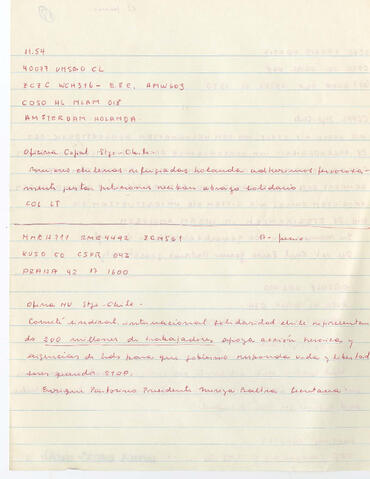 11.54
40077 UNSAD CL
ZCZC WCH316- R.E.C. AMW603
COSO HL NLAM 018
AMSTERDAM HOLANDA
Oficina Cepal Stgo-Chile-
Mujeres chilenas refugiadas holanda adherimos
mente justas peticiones reciban abrazo solidario
COL LT
17 junio
KUSO CO CSPR 043
PRAHA 42 17 1600
Oficina NU Stgo-Chile-
Comité sindical internacional solidaridad chile representan
do 300 millones de trabajadores apoya acción heroica y
exigencias de Uds para que gobierno responda vida y libertad
seres queridos STOP.
Enrique Pastorino Presidente Secretaria